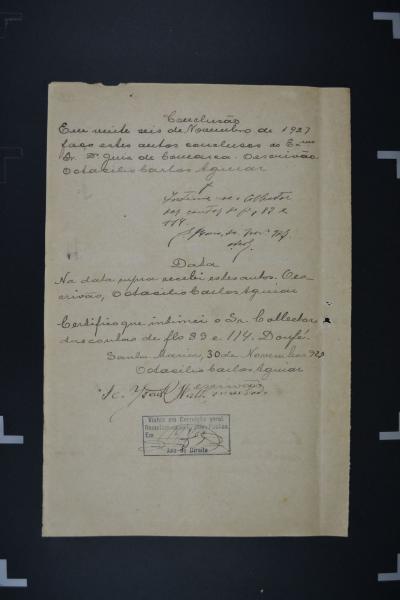 Conclusão
Em vinte seis de Novembro de 1927
faço estes autos conclusos ao Exmo
Sr. Dr. Juiz de Comarca. O escrivão
Octacilio Carlos Aguiar
Intime-se o Collector
das contas de fl. 83 e
114.
Data
Na data supra recebi estes autos. O es-
crivão, Octacilio Carlos Aguiar
Certifico que intimei o Sr. Collector
das contas de fls 83 e 114. Dou fé.
Santa Maria, 30 de Novembro 92
Octacilio Carlos Aguiar
escrivão
Vistos em Correição geral.
Em
Juiz de Direito